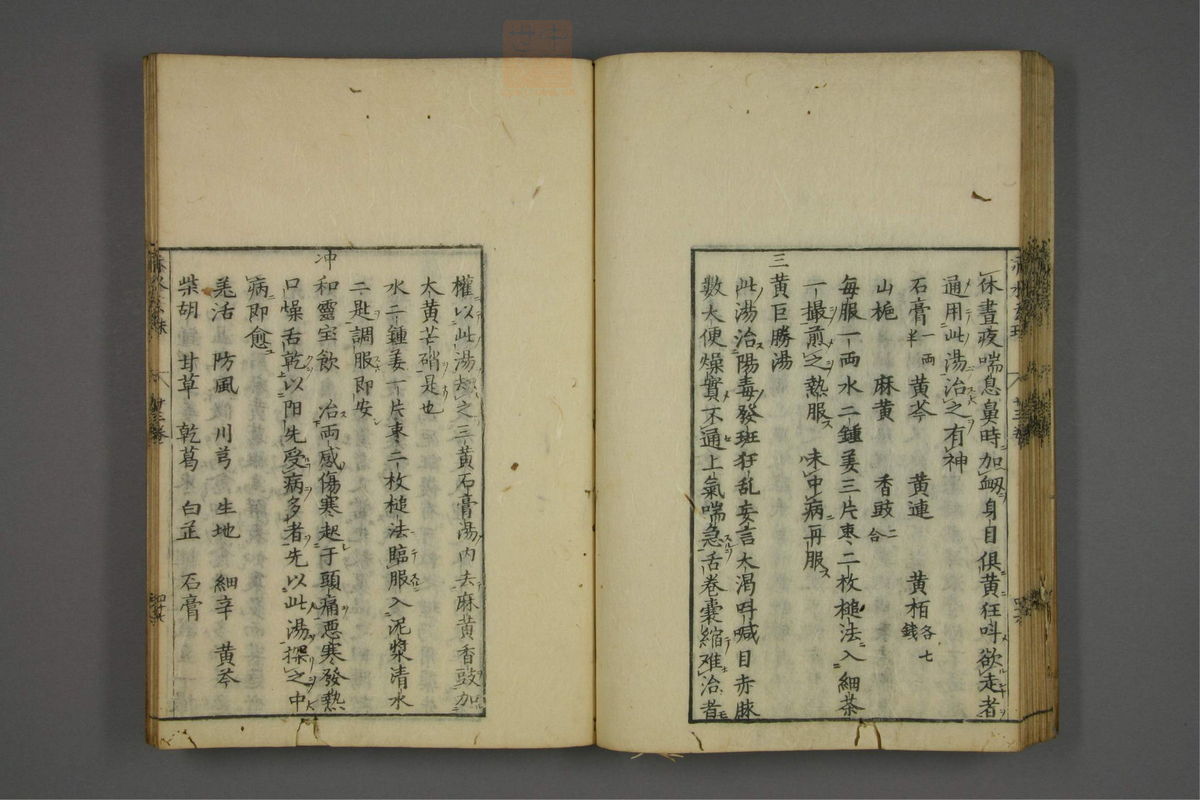 休晝夜喘息鼻時加衂身目俱黄狂呌欲走者
通用此湯治之有神
石膏一両半 黄芩 黄連 黄栢各七錢
山梔 麻黄 香豉二合
毎服一両水二鍾姜三片枣二枚槌法入細茶
一撮煎之熱服未中病再服
三黄巨勝湯
此湯治陽毒發班狂乱妄言大渴呌喊目赤脉
數大便燥實不通上氣喘急舌卷囊縮难治者
權以此湯刼之三黄石膏湯内去麻黄香豉加
大黄芒硝是也
水二鍾姜一片枣二枚槌法臨服入泥漿清水
二匙調服即安
冲和靈宝飲 治両感傷寒起于頭痛悪寒發熱
口燥舌乾以阳先受病多者先以此湯探之中
病即愈
羌活 防風 川芎 生地 細辛 黄芩
柴胡 甘草 乾葛 白芷 石膏